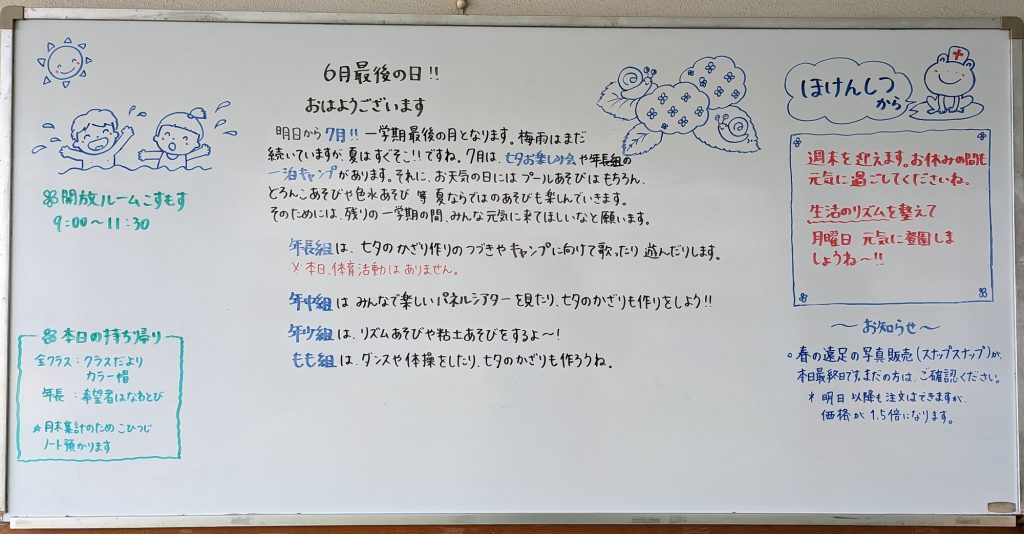 6月最後の日!!
おはようございます
明日から7月!! 一学期最後の月となります。梅雨はまだ
続いていますが、夏はすぐそこ!!ですね。7月は、七夕お楽しみ会や年長組の
一泊キャンプがあります。それに、お天気の日にはプールあそびはもちろん、
どろんこあそびや色水あそび 等 夏ならではのあそびも楽しんでいきます。
そのためには、残りの一学期の間、みんな元気に来てほしいなと願います。
年長組は、七夕のかざり作りのつづきやキャンプに向けて歌ったり 遊んだりします。
※本日、体育活動はありません。
年中組は みんなで楽しいパネルシアターを見たり、七夕のかざりも作りをしよう!!
年少組は、リズムあそびや粘土あそびをするよ〜!
もも組は、ダンスや体操をしたり、七夕のかざりも作ろうね。
開放ルームこすもす
9:00〜11:30
本日の持ち帰り
全クラス:クラスだより
カラー帽
年長:希望者はなわとび
★月末集計のためこひつじ
ノート預かります
ほけんしつ
から
週末を迎えます。お休みの間も
元気に過ごしてくださいね。
生活のリズムを整えて
月曜日 元気に登園しま
しょうね〜!!
〜お知らせ〜
○春の遠足の写真販売(スナップスナップ)が、
本日最終日です。まだの方は、ご確認ください。
*明日以降も注文はできますが、
価格が1.5倍になります。